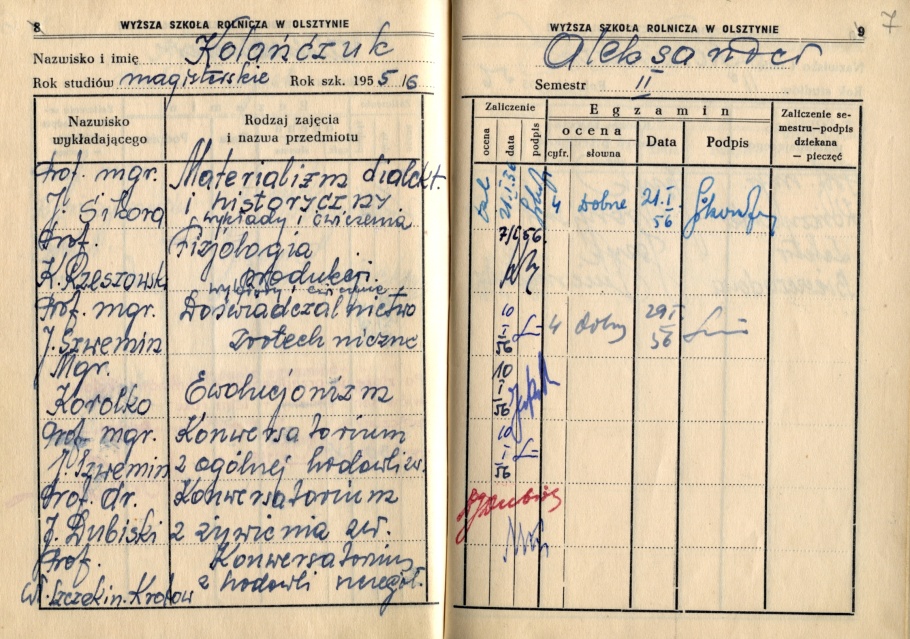 8 WYŻSZA SZKOŁA ROLNICZA W OLSZTYNIE
Nazwisko i imię Kołańczuk
Rok studiów magisterskie Rok szk. 1955/6
Nazwisko wykładającego
Rodzaj zajęcia i nazwa przedmiotu
Prof. mgr. Materializm dialekt.
J. Sikora i historyczny
wykłady i ćwiczenia
Prof. Fizjologia
K. Rzeszowski produkcji.
wykłady i ćwiczenia
Prof. mgr. Doświadczalnictwo
J. Szwemin zootechniczne
Mgr.
Korolko Ewolucjonizm
Prof. mgr. Konwersatorium
J. Szwemin z ogólnej hodowli zw.
Prof. dr. Konwersatorium
J. Dubiski z żywienia zw.
Prof. Konwersatorium
Wł. Szczekin-Krotow z hodowli szczegół.
WYŻSZA SZKOŁA ROLNICZA W OLSZTYNIE 9
7
Aleksander
Semestr II
Zaliczenie
ocena
data
podpis
Egzamin
ocena
cyfr.
słowna
Data
Podpis
Zaliczenie se-
mestru—podpis
dziekana
— pieczęć
4 dobrze 21.I 56
7/I 56.
10 I 56 4 dobry 29 I 56
10 I 56
10 I 56